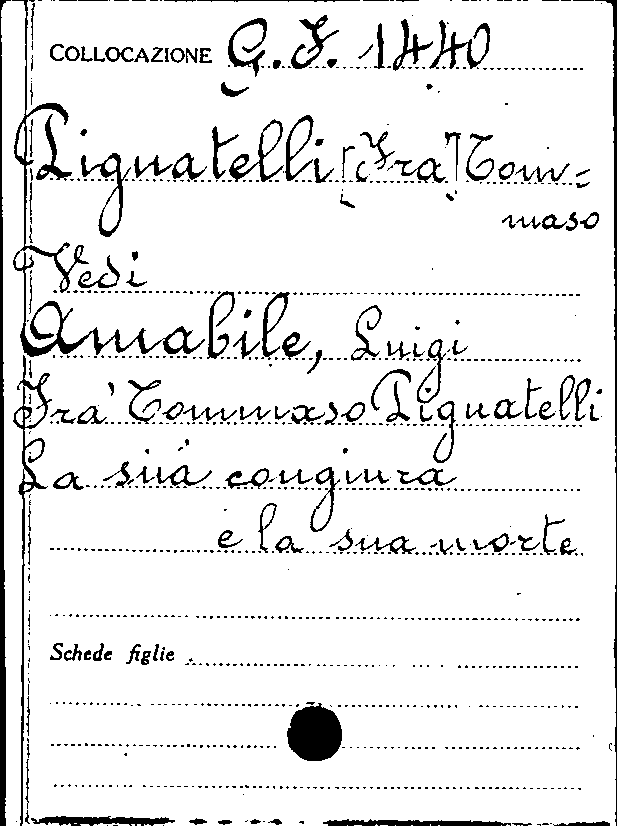 COLLOCAZIONE G. F. 1440
Pignatelli [Fra] Tom=
maso
Vedi
Amabile, Luigi
Fra' Tommaso Pignatelli
La sua congiura
e la sua morte
Schede figlie